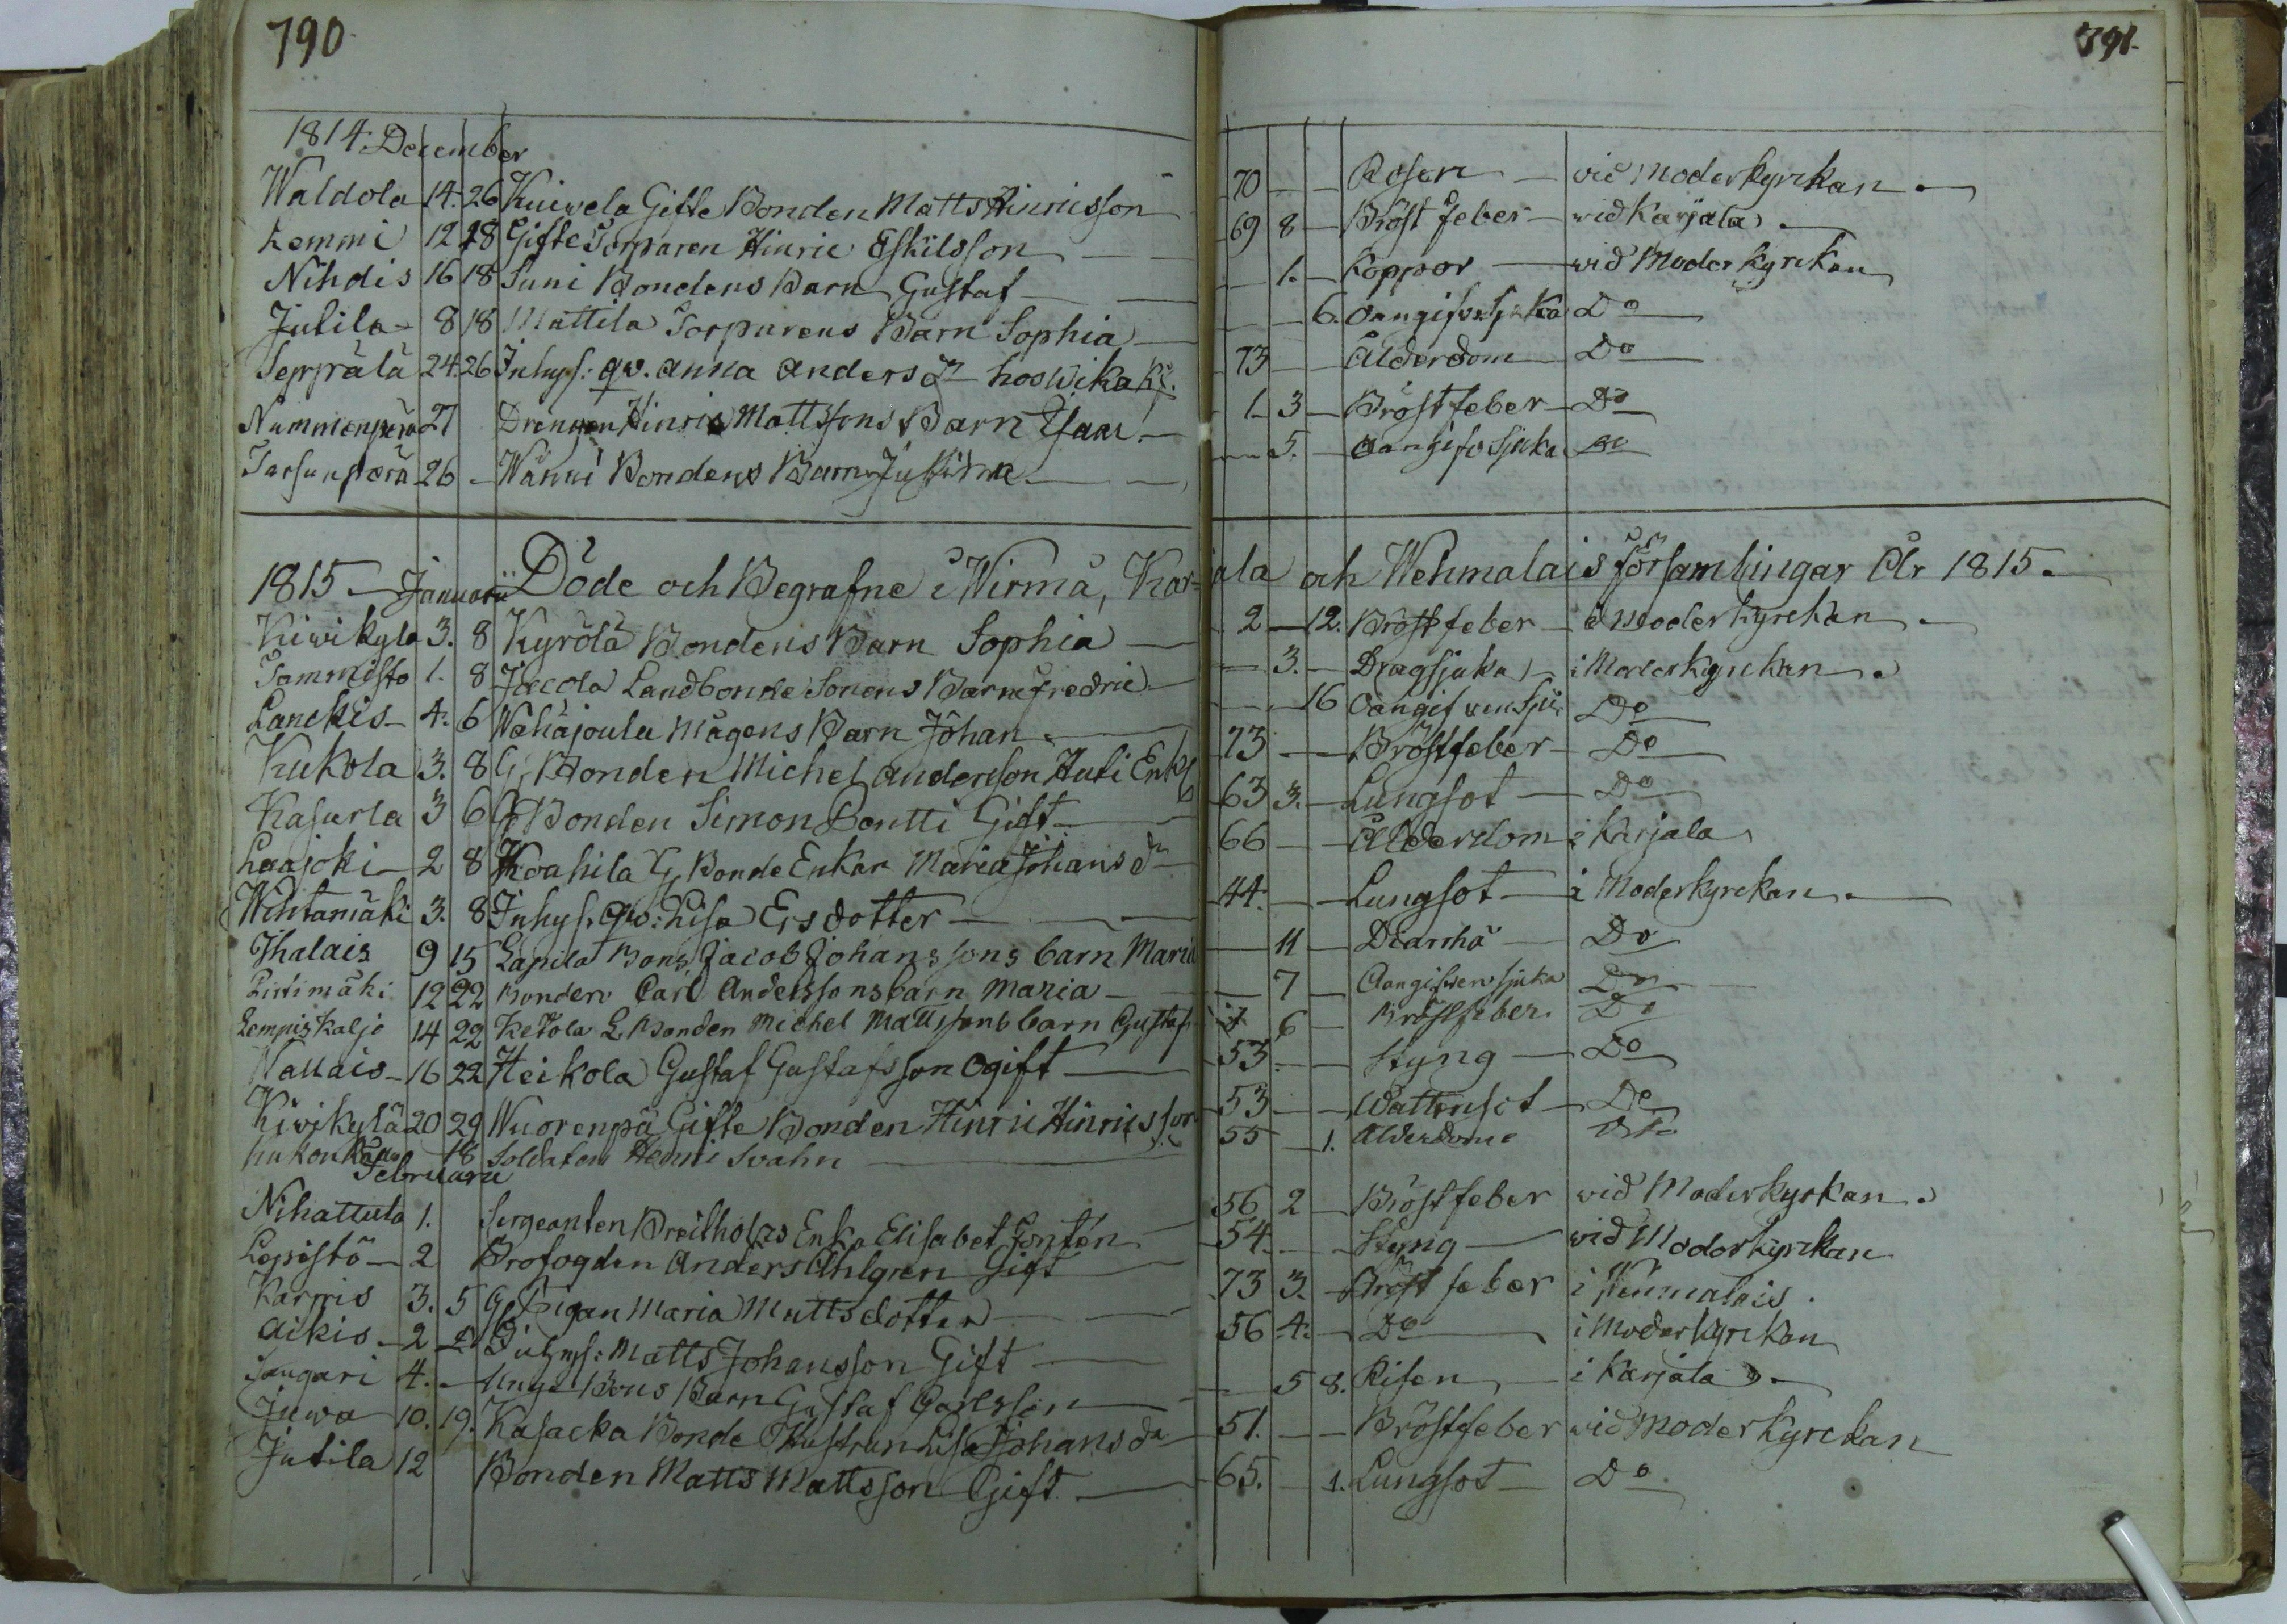 790
1814. December
Waldola 14. 26 Kuiwela Gifte Bonden Matts Hinricsson
Lemmi 12 18 Gifte Torparen Hinric Eskilsson
Nihdis 16 18 Suni Bondens Barn Gustaf
Jutila 8 18 Mattila Torparens Barn Sophia
Seppälä 24. 26 Inhys: qw. Anna Anders dr hos Wikaki.
Nummenperä 27 Drengen Hinric Mattssons Barn Esaac
Tarfunperä 26 - Wänni Bondens Barn Justina
1815 Januarii Döde och Begrafne i Wirmå, Kar-
Kiwikyla 3. 8 Kyrölä Bondens Barn Sophia
Tammisto 1. 8 Jacola Landbonde Sonens Barn Fredric
Lanckis 4. 6 Wähäjoula Mågens Barn Johan
Kukola 3. 8 G. Bonden Michel Andersson Huti Enkl
Kasurla 3 6 G Bonden Simon Pontti Gift
Laajoki 2 8 Koahila G. Bonde Enkan Maria Johans dr
Wihtamäki 3. 8 Inhys. qw: Lisa Ersdotter
Ihalais 9 15 Lapila Bons Jacob Johanssons barn Maria
Lintimäki 12 22 Bonden Carl Anderssons barn Maria
Lempiskaljo 14 22 Ketola L. Bonden Michel Mattssons barn Gustaf
Nallais 16 22 Heikola Gustaf Gustafsson Ogift
Kivikylä 20 29 Wuorenpä Gifte Bonden Hinric Hinricsson
18 Soldaten Henric Svahn
Februarii
Nihattula 1. Sergeanten Breitholzs Enka Elisabet Fontén
Lepistö 2 Brofogden Anders Ahlgren Gift
Karris 3. 5 G. Pigan Maria Mattsdotter
Aikis 2 Inhys: Matts Johansson Gift
Tangari 4. - Unga Bons Barn Gustaf Carlsson
Juwa 10. 19. Kasacka Bonde Hustrun Lisa Johans dr
Jutila 12 Bonden Matts Mattsson Gift
791.
70 - - Rosen vid Moderkyrckan
69 8 - Bröstfeber wid Karjala
1. - Koppor wid Moderkyrckan
6. Oangifven Sjuka Do
73 Ålderdom Do
1. 3 - Bröstfeber Do
5. - Oangifv. Sjuka Do
jala och Wehmalais församlingar År 1815.
2 - 12. Bröstfeber i Moderkyrckan
3. - Dragsjuka i Moderkyrckan
16 Oangifven Sju. Do
73 - - Bröstfeber Do
63 3. - Lungsot Do
66 - - Ålderdom i Karjala
44. - - Lungsot i Moderkyrckan
11 - Diarrhä Do
7 - Oangifven sjuka Do
6 - Bröstfeber Do
53 - - Styng Do
53 - - Wattusot Do
55 - 1. Ålderdom Do
56 2 - Bröstfeber wid Moderkyrkan
54. - - Styng wid Moderkyrckan
73 3. - Bröst feber i Wehmalais
56 4. - Do i Moderkyrckan
5 8. Risen i Karjala
51. - - Bröstfeber wid Moderkyrckan
65. - 1. Lungsot Do